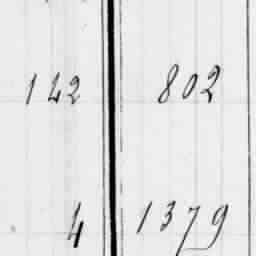 142 802
4 1379